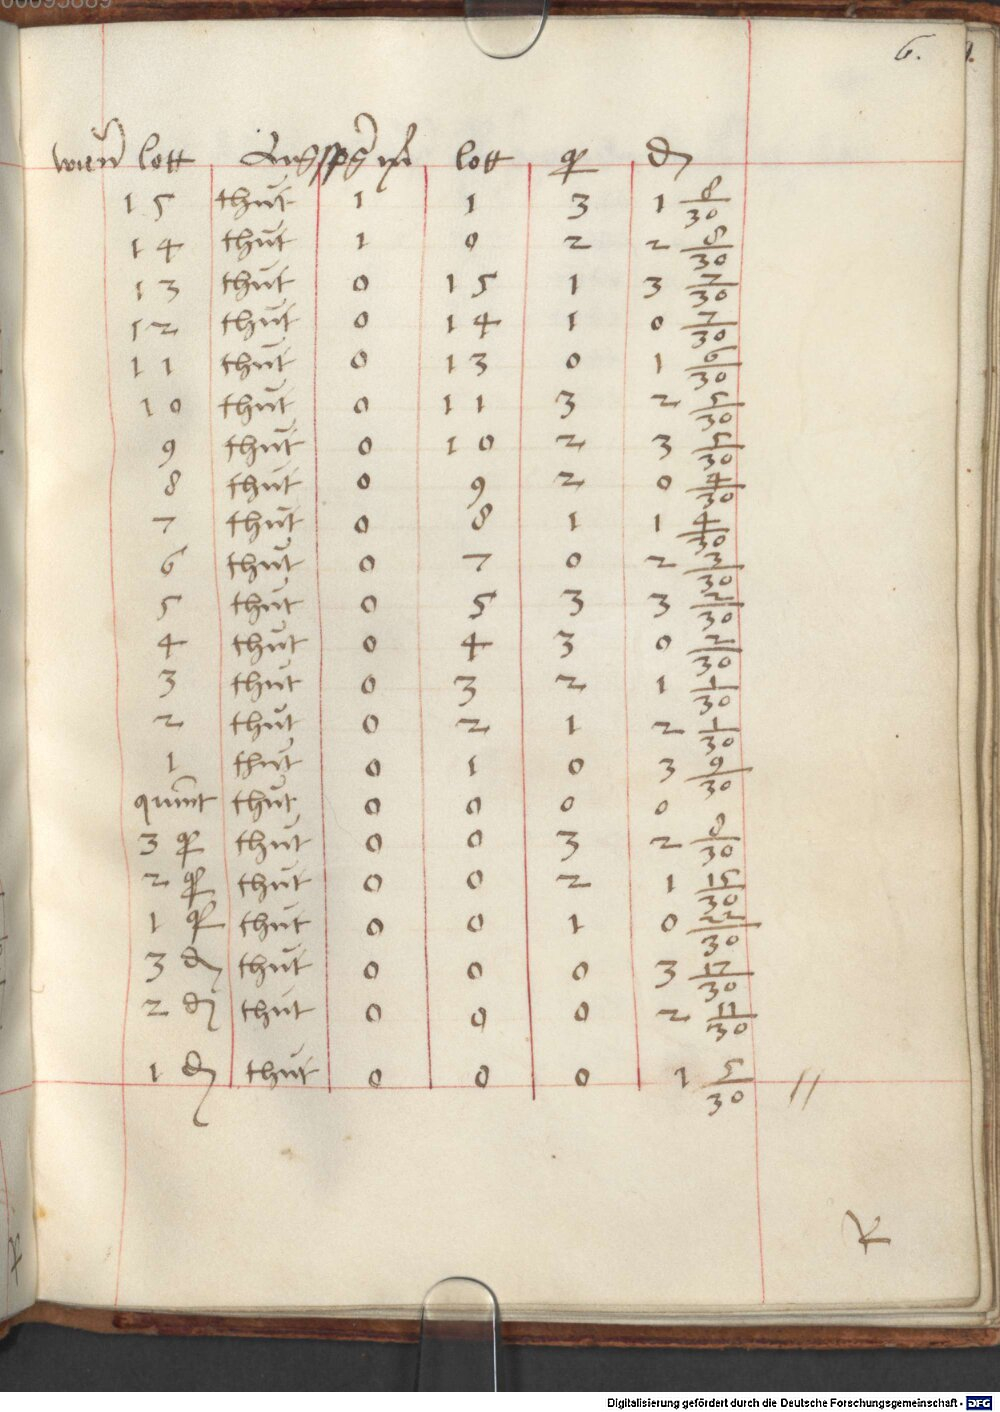 00095889
6.
wien̄ lott Augspg̃ m̃ lott q̃ ₰
15 thut 1 1 3 1 8/30
14 thut 1 0 2 2 8/30
13 thut 0 15 1 3 7/30
12 thut 0 14 1 0 7/30
11 thut 0 13 0 1 6/30
10 thut 0 11 3 2 5/30
9 thut 0 10 2 3 5/30
8 thut 0 9 2 0 4/30
7 thut 0 8 1 1 4/30
6 thut 0 7 0 2 3/30
5 thut 0 5 3 3 2/30
4 thut 0 4 3 0 2/30
3 thut 0 3 2 1 1/30
2 thut 0 2 1 2 1/30
1 thut 0 1 0 3 9/30
quint thut 0 0 0 0
3 q̃ thut 0 0 3 2 8/30
2 q̃ thut 0 0 2 1 15/30
1 q̃ thut 0 0 1 0 22/30
3 ₰ thut 0 0 0 3 17/30
2 ₰ thut 0 0 0 2 11/30
1 ₰ thut 0 0 0 1 5/30 //
Digitalisierung gefördert durch die Deutsche Forschungsgemeinschaft - DFG